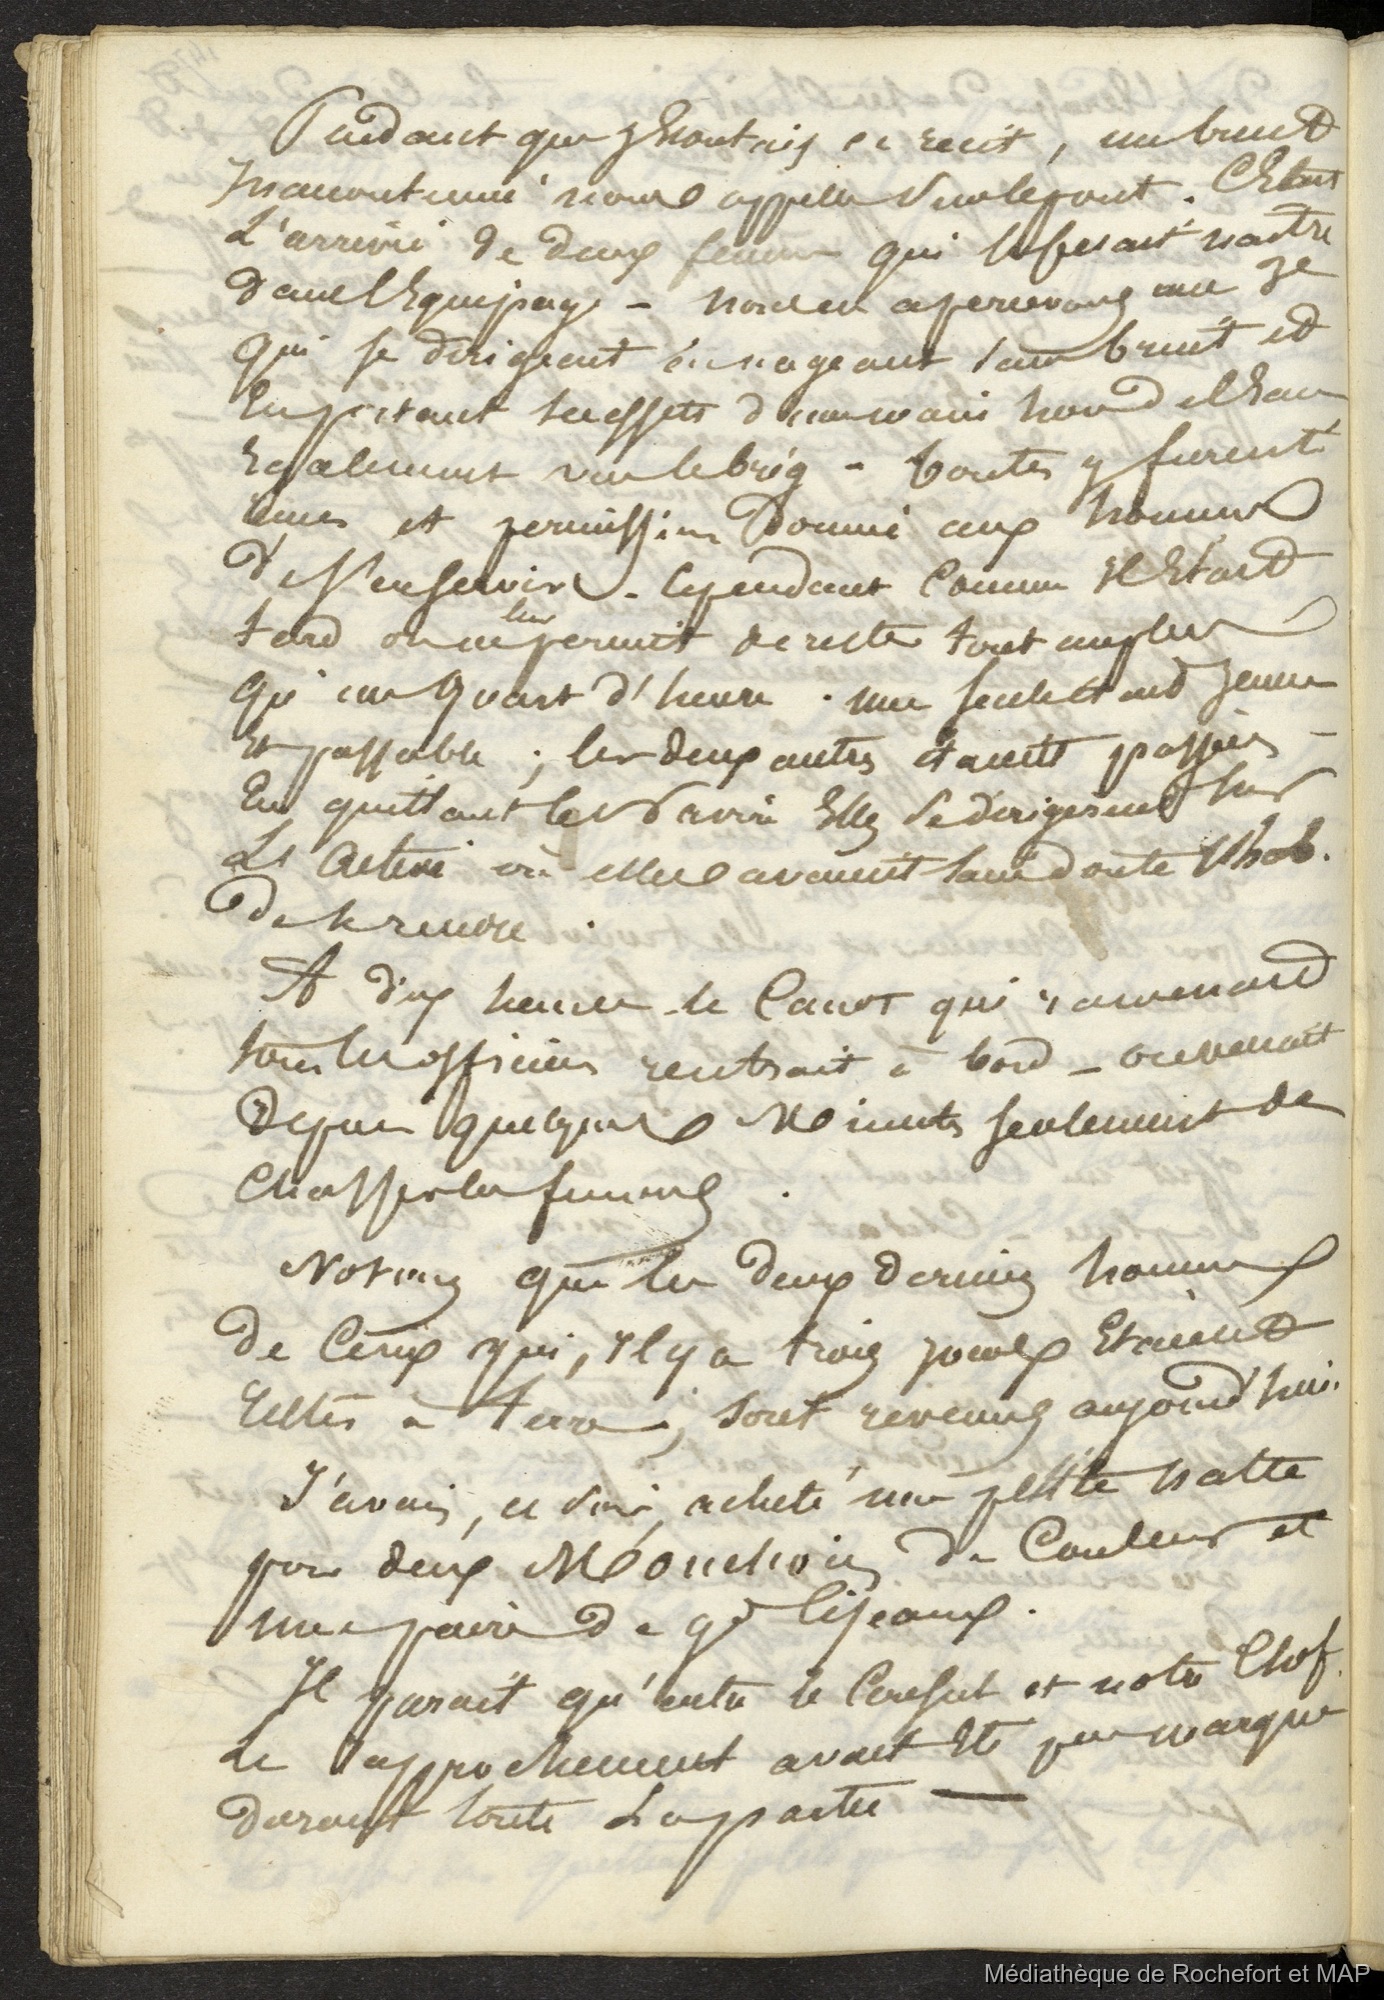 Pendant que j'Ecoutais ce recit, un bruit
Inaccoutumé nous appella sur le pont. C'Etait
L'arrivée de deux femmes qui le fesait naitre
dans l'Equipage - nous en apercevons une 3e
qui se dirigeait en nageant sans bruit et
En portant ses effets d'une main hors de l'Eau
Egalement sur le brig - toutes y furent
et permission Donnée aux hommes
de s'en servir - Cependant Comme Il Etait
tard on ne leur permit de rester tout au plus
qu'un quart d'heure . une seule était jeune
Et passable ; les deux autres étaient passées -
En quittant le Navire Elles se dirigerent sur
L'Active où elles avaient sans doute
de se rendre .
A dix heures le Canot qui ramenait
tous les officiers rentrait à bord - on venait
depuis quelques Minutes seulement de
Chasser les femmes .
Notons que les deux derniers hommes
de Ceux qui, Il y a trois jours Etaient
restés à terre, sont revenus aujourd'hui.
J'avais, ce soir, acheté une petite natte
pour deux Mouchoirs de Couleur et
une paire de gds Ciseaux .
Il parait qu'entre le Consul et notre Chef.
Le rapprochement avait Eté peu marqué
durant toute La partie —
Médiathèque de Rochefort et MAP